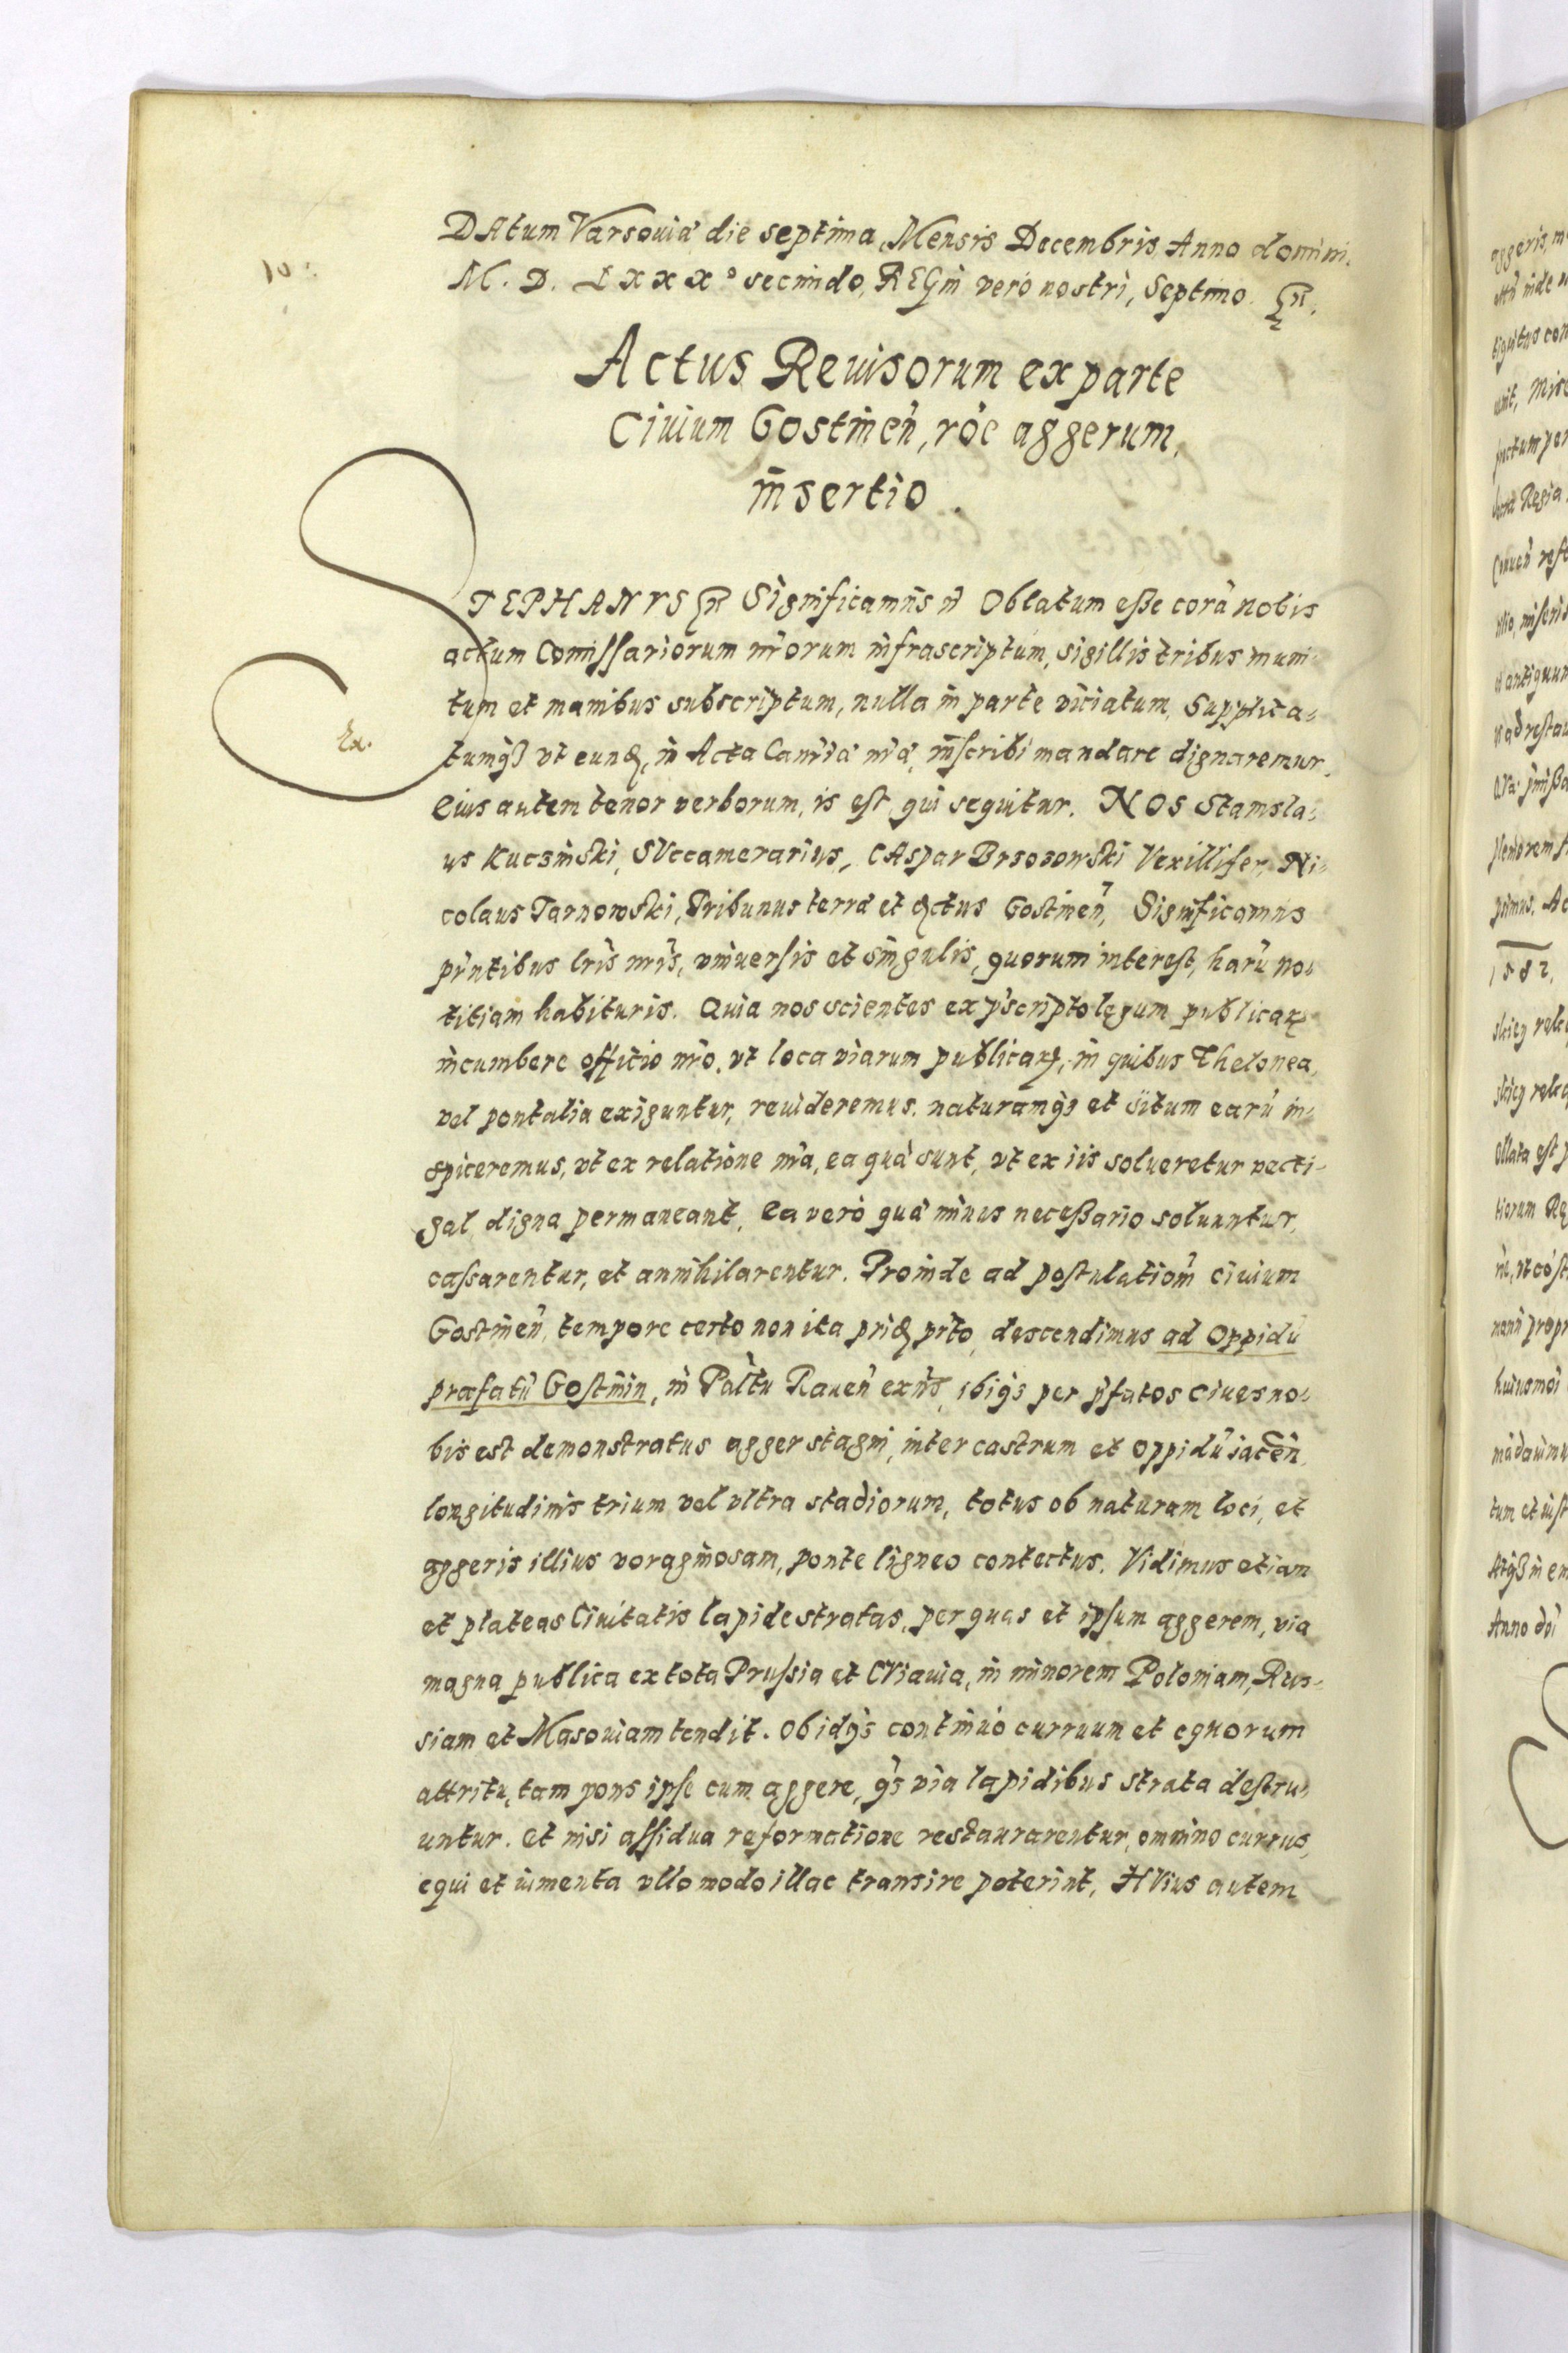 DAtum Varsouiæ die septima Mensis Decembris Anno domini
M. D. LXXX° secundo, REGni vero nostri, Septimo.
Actus Reuisorum ex parte
Ciuium Gostineñ, rõe aggerum,
insertio.
STEPHANVS Significamus Oblatum esse corã nobis
actum Comissariorum nr̃orum infrascriptum, sigillis tribus muni-
tum et manibus subscriptum, nulla in parte viciatum, Supplica-
Ex.
tumq3 vt eund, in Acta Canc̃riæ nr̃æ, inscribi mandare dignaremur.
Eius autem tenor verborum, is est qui sequitur. NOS Stanisla-
us Kucsinski, SVccamerarius, CAspar Brsosowski Vexillifer, Ni-
colaus Tarnowski, Tribunus terræ et Gostineñ, Significamus
pñtibus lr̃is nr̃is, vniuersis et singulis, quorum interest, harũ no-
titiam habituris. Quia nos scientes ex p̃scripto legum publicarꝝ
incumbere officio nr̃o, vt loca viarum publicarꝝ, in quibus Thelonea,
vel pontalia exiguntur, reuideremus, naturamq3 et situm earũ in-
spiceremus, vt ex relatione nr̃a, ea quæ sunt, vt ex iis solueretur vecti-
gal digna permaneant, Ea vero quæ minus necessario soluuntur,
cassarentur, et annihilarentur. Proinde ad postulationẽ ciuium
Gostineñ, tempore certo non ita prid pr̃to, descendimus ad Oppidũ
præfatũ Gostinin, in Pal̃tu Raueñ exñs, ibiq3 per p̃fatos ciues no-
bis est demonstratus agger stagni, inter castrum et oppidũ iaceñ,
longitudinis trium vel vltra stadiorum, totus ob naturam loci, et
aggeris illius voraginosam, ponte ligneo contectus. Vidimus etiam
et plateas Ciuitatis lapide stratas, per quas et ipsum aggerem, via
magna publica ex tota Prussia et CViauia, in minorem Poloniam, Rus-
siam et Masouiam tendit. Ob idq3 continuo curruum et equorum
attritu, tam pons ipse cum aggere, q3 via lapidibus strata destru-
untur. et nisi assidua reformatione restaurarentur, omnino currus,
equi et iumenta vllo modo illac transire poterint, HVius autem